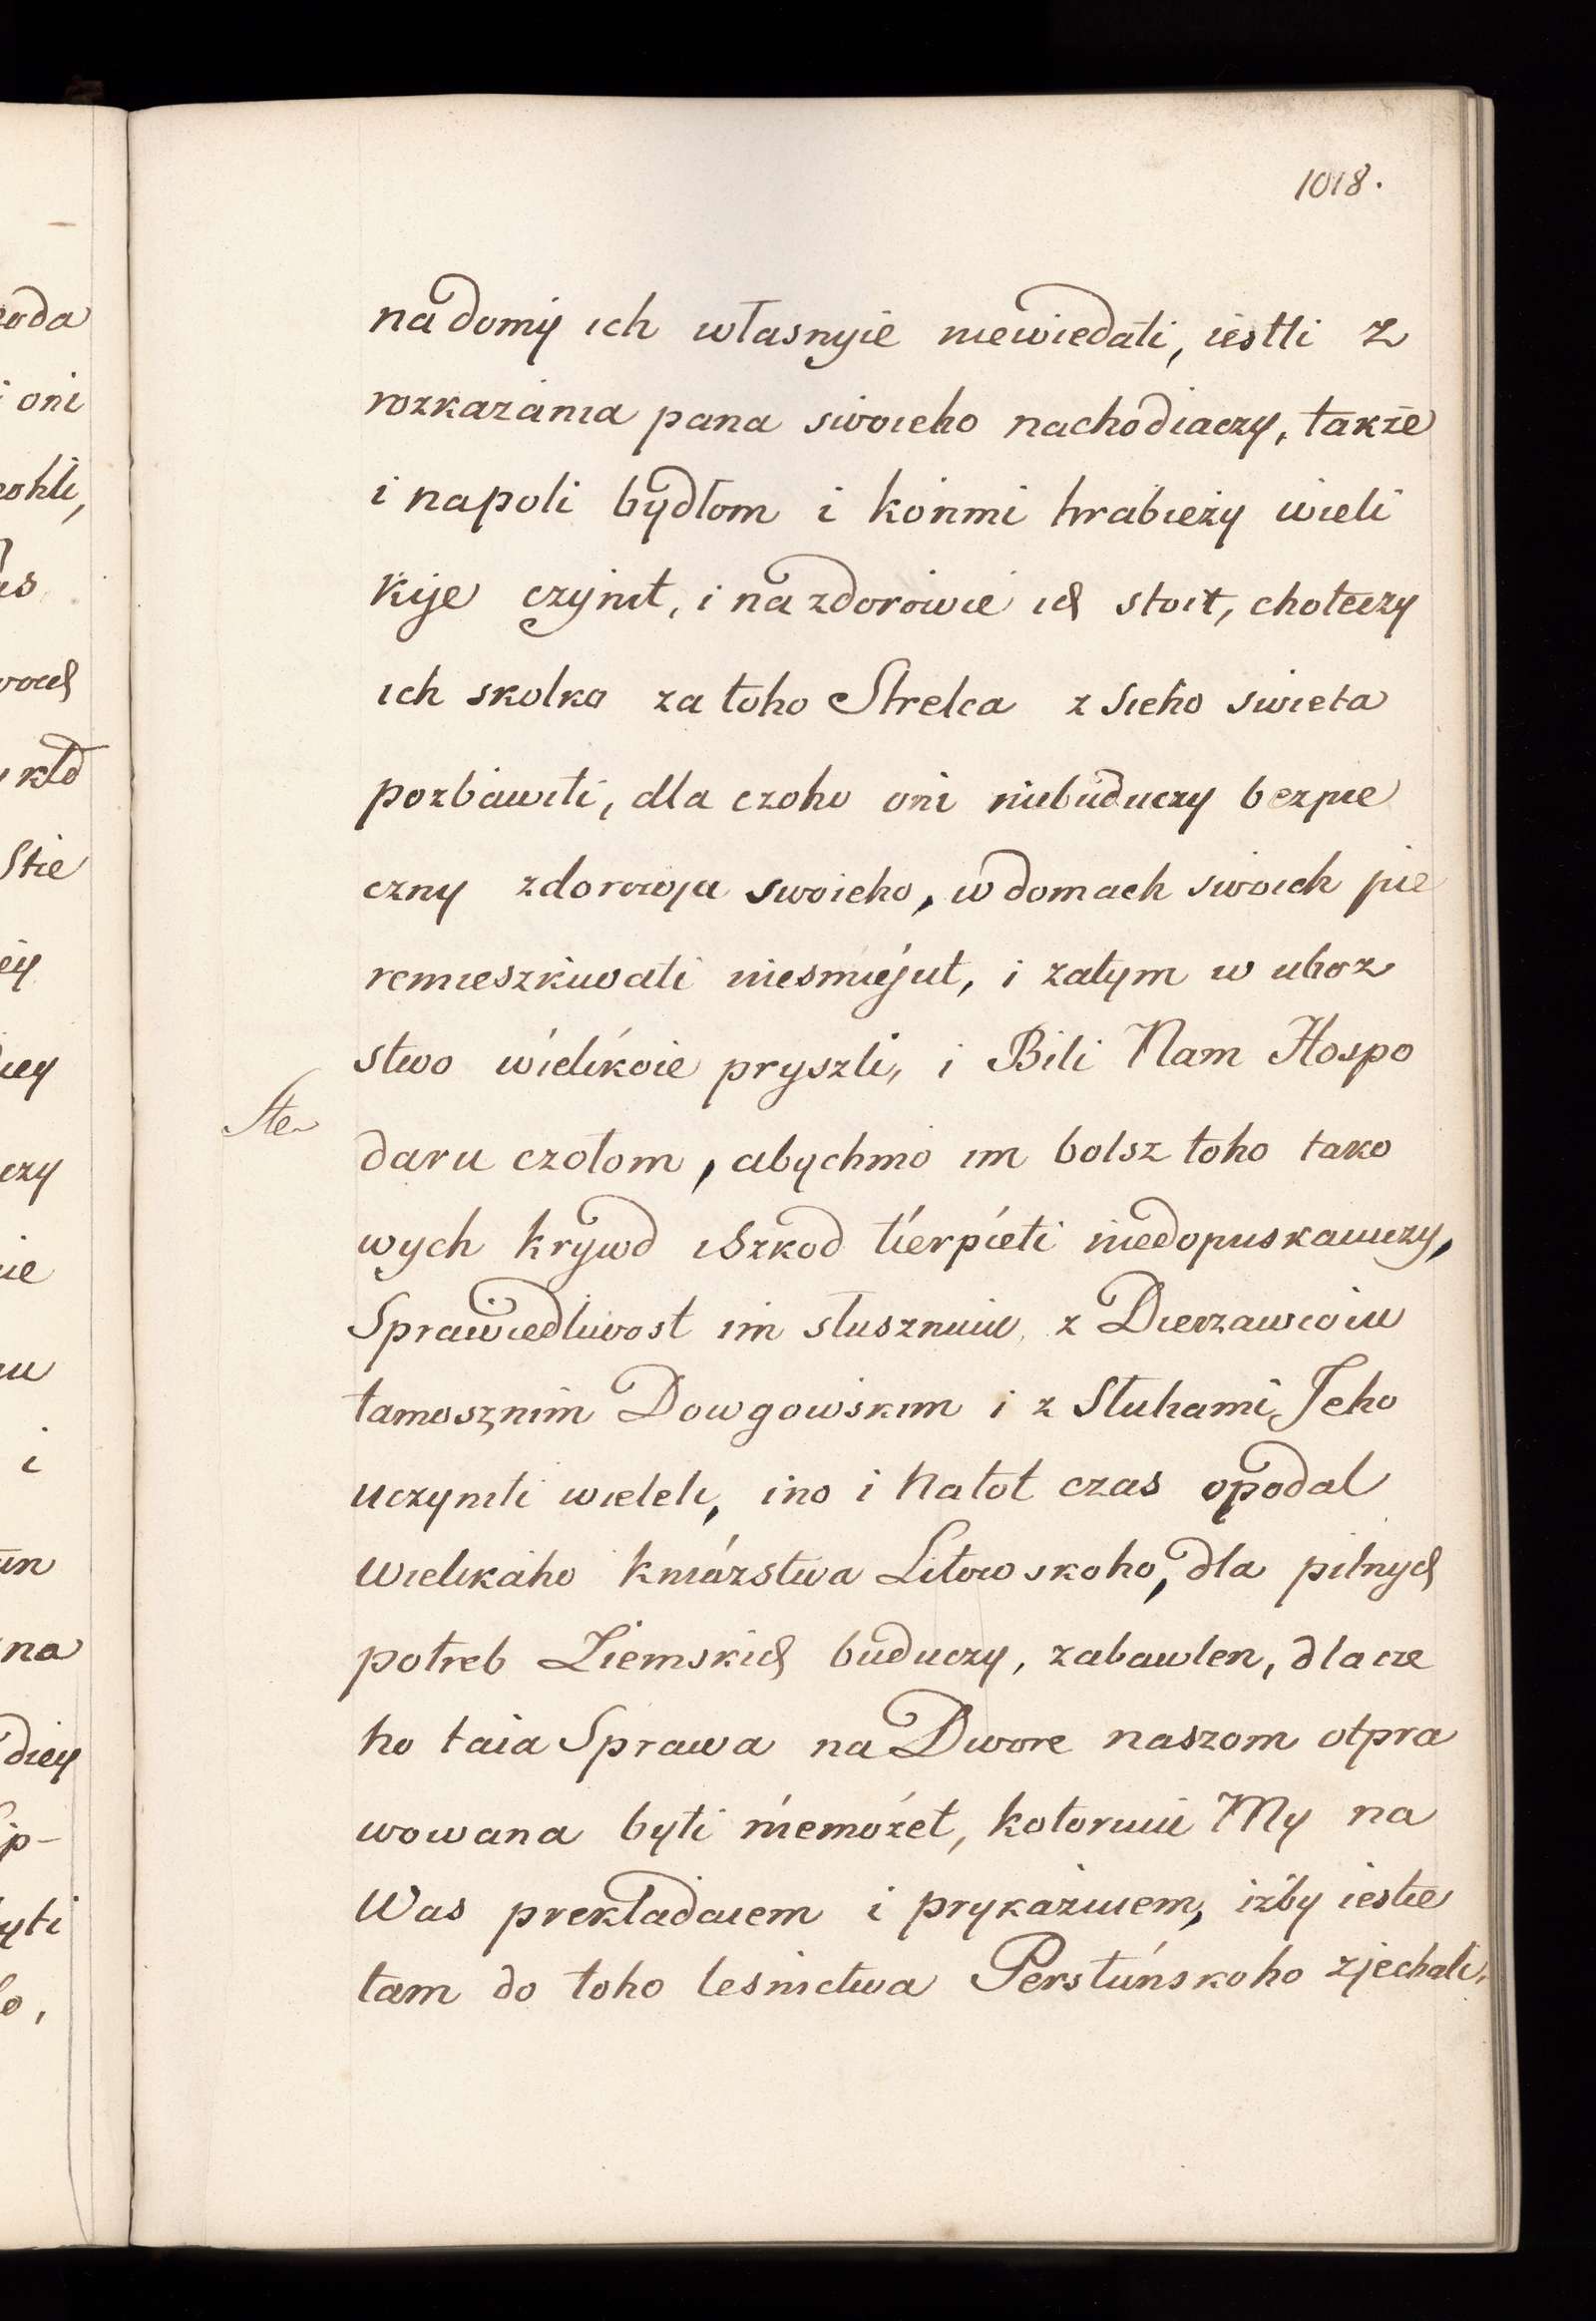 1018.
na domy ich własnyie niewiedali, iestli z
rozkazania pana swoieho nachodiaczy, także
i napoli bydłom i końmi hrabieży wieli
kije czynit, i na zdorowie ich stoit, choteczy
ich skolko za toho Strelca z sieho swieta
pozbawiti, dla czoho oni niebuduczy bezpie
czny zdorowja swoieho, w domach swoich pie
remieszkiwati niesmiejut, i zatym w uboz
stwo wielikoie pryszli, i Bili Nam Hospo
daru czołom, abychmo im bolsz toho tako
wych krywd i Szkod tierpieti niedopuskaiuczy,
Sprawiedliwost im słusznuiu z Dierzawcoiu
tamosznim Dowgowskim i z Słuhami Jeho
uczyniti wieleli, ino i Natot czas opodal
Wielikaho kniazstwa Litowskoho, dla pilnych
potreb Ziemskich buduczy, zabawlen, dlacze
ho taia Sprawa na Dwore naszom otpra
wowana byti niemożet, kotoruiu My na
Was prekładaiem i prykazuiem, iżby iestie
tam do toho lesnictwa Perstuńskoho zjechali,